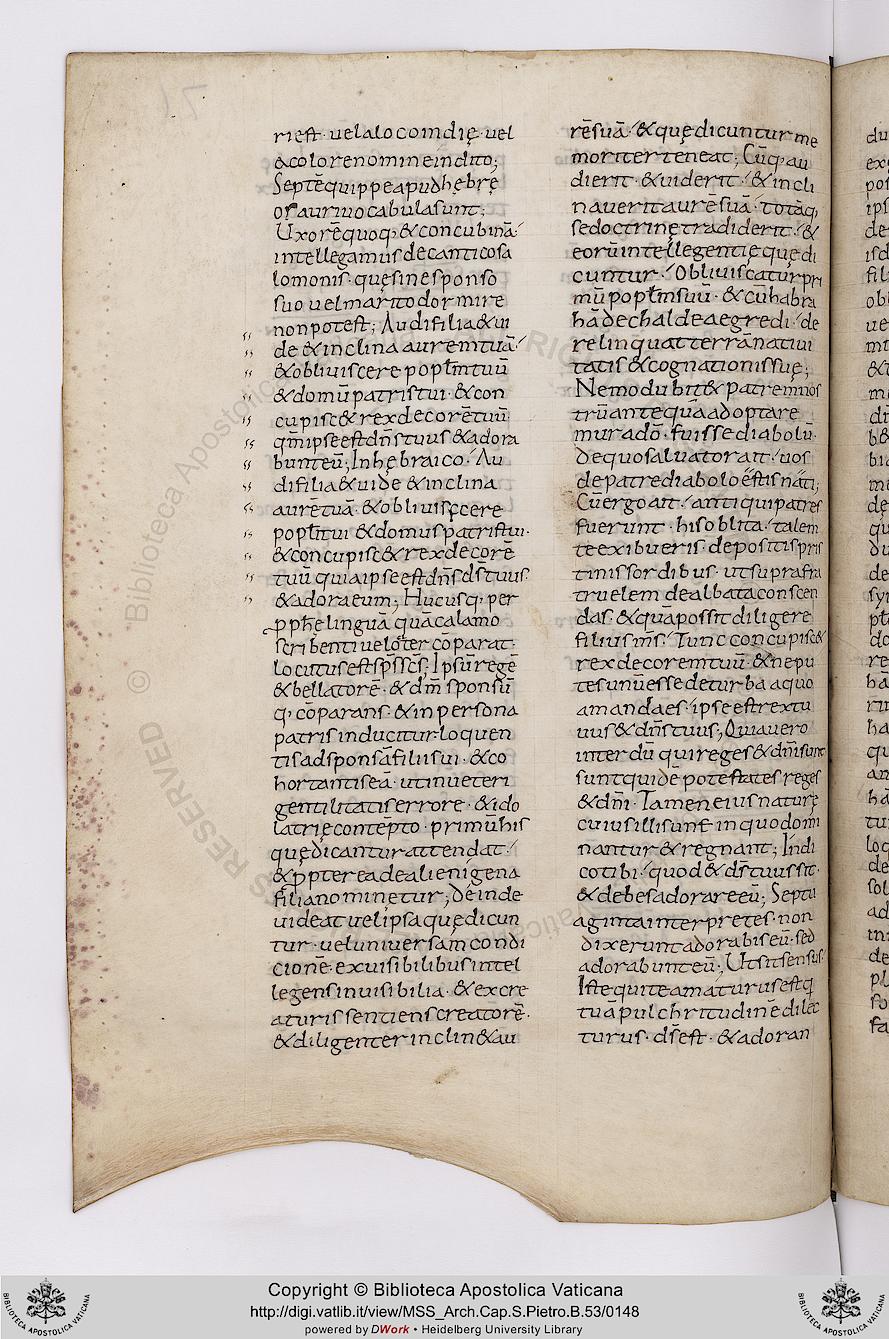 riest · uel a loco indię · uel
& colore nomine indito;
Septē quippe apud hębrę
os auri uocabula sunt;
Uxorē quoq; & concubinā
intellegamus de cantico sa
lomonis · quę sine sponso
suo uel marito dormire
non potest; Audi filia & ui
de & inclina aurem tuā
& obliuiscere popłm tuū
& domū patris tui · & con
cupisc& rex decorē tuū
qm̄ ipse est dn̄s tuus & adora
bunt eū; In hębraico · Au
di filia & uide & inclina
aurē tuā · & obliuiscere
popłi tui & domus patris tui ·
& concupisc& rex decorē
tuū quia ipse est dn̄s ds̄ tuus
& adora eum; Hucusq; per
pph̄e linguā quā calamo
scribenti uelot̄er cōparat ·
locutus est sp̄s sc̄s; Ipsū regē
& bellatorē · & dn̄i sponsū
q; cōparans · & in persona
patris inducitur · loquen
tis ad sponsā filii sui · & co
hortantis eā · ut in ueteri
gentilitatis errore · & ido
latrię contēpto · primū his
quę dicantur attendat
& p̄pterea de alienigena
filia nominetur; Deinde
uideat uel ipsa quę dicun
tur · uel uniuersam condi
cionē · ex uisibilibus intel
legens inuisibilia · & ex cre
aturis sentiens creatorē ·
& diligenter inclin& au
rē suā · & quę dicuntur me
moriter teneat; Cūq; au
dierit · & uiderit · & incli
nauerit aurē suā · totāq;
se doctrinę tradiderit · &
eorū intellegentię quę di
cuntur · Obliuiscatur pri
mū popłm suū · & cū habra
hā de chaldea egredi · de
relinquat terrā natiui
tatis & cognationis suę;
Nemo dubit& patrem nos
trū antequā adoptare
mur a dō · fuisse diabolū ·
De quo saluator ait · uos
de patre diabolo estis nati;
Cū ergo ait · antiqui patres
fuerunt · his oblita · talem
te exibueris · depositis pris
tinis sordibus · ut supra fra
truelem dealbata conscen
das · & quā possit diligere
filius m̄s · Tunc concupisc&
rex decorem tuū · & ne pu
tes unū esse de turba a quo
amanda es · ipse est rex tu
uus & dn̄s tuus; Quia uero
interdū qui reges & dn̄i sunt
sunt quidē potestates reges
& dn̄i · Tamen eius naturę
cuius illi sunt in quo domi
nantur & regnant; Indi
co tibi · quod & ds̄ tuus sit ·
& debes adorare eū; Septu
aginta interpretes · non
dixerunt adorabis eū · sed
adorabunt eū; Ut sit sensus
Iste qui te amaturus est q;
tuā pulchritudinē dilec
turus · ds̄ est · & adoran
Copyright © Biblioteca Apostolica Vaticana
http://digi.vatlib.it/view/MSS_Arch.Cap.S.Pietro.B.53/0148
powered by DWork • Heidelberg University Library